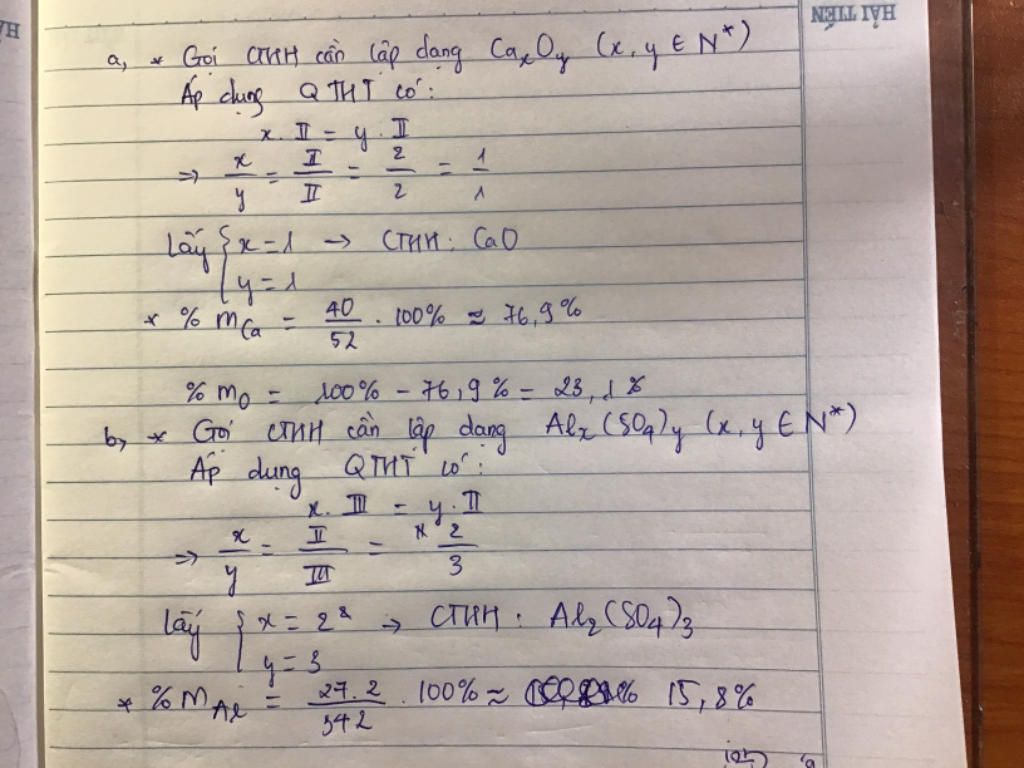 HẢI TIẾN
a, * Gọi CTHH cần lập dạng CaxOy (x, y ∈ N*)
Áp dụng QTHT có:
x. II = y. II
=> x/y = II/II = 2/2 = 1/1
Lấy { x = 1 → CTHH: CaO
y = 1
* % mCa = 40/52 . 100% ≈ 76,9%
% mO = 100% - 76,9% = 23,1%
b, * Gọi CTHH cần lập dạng Alx(SO4)y (x, y ∈ N*)
Áp dụng QTHT có:
x. III = y. II
=> x/y = II/III = 2/3
Lấy { x = 2 → CTHH: Al2(SO4)3
y = 3
* % mAl = 27.2/342 . 100% ≈ 15,8%